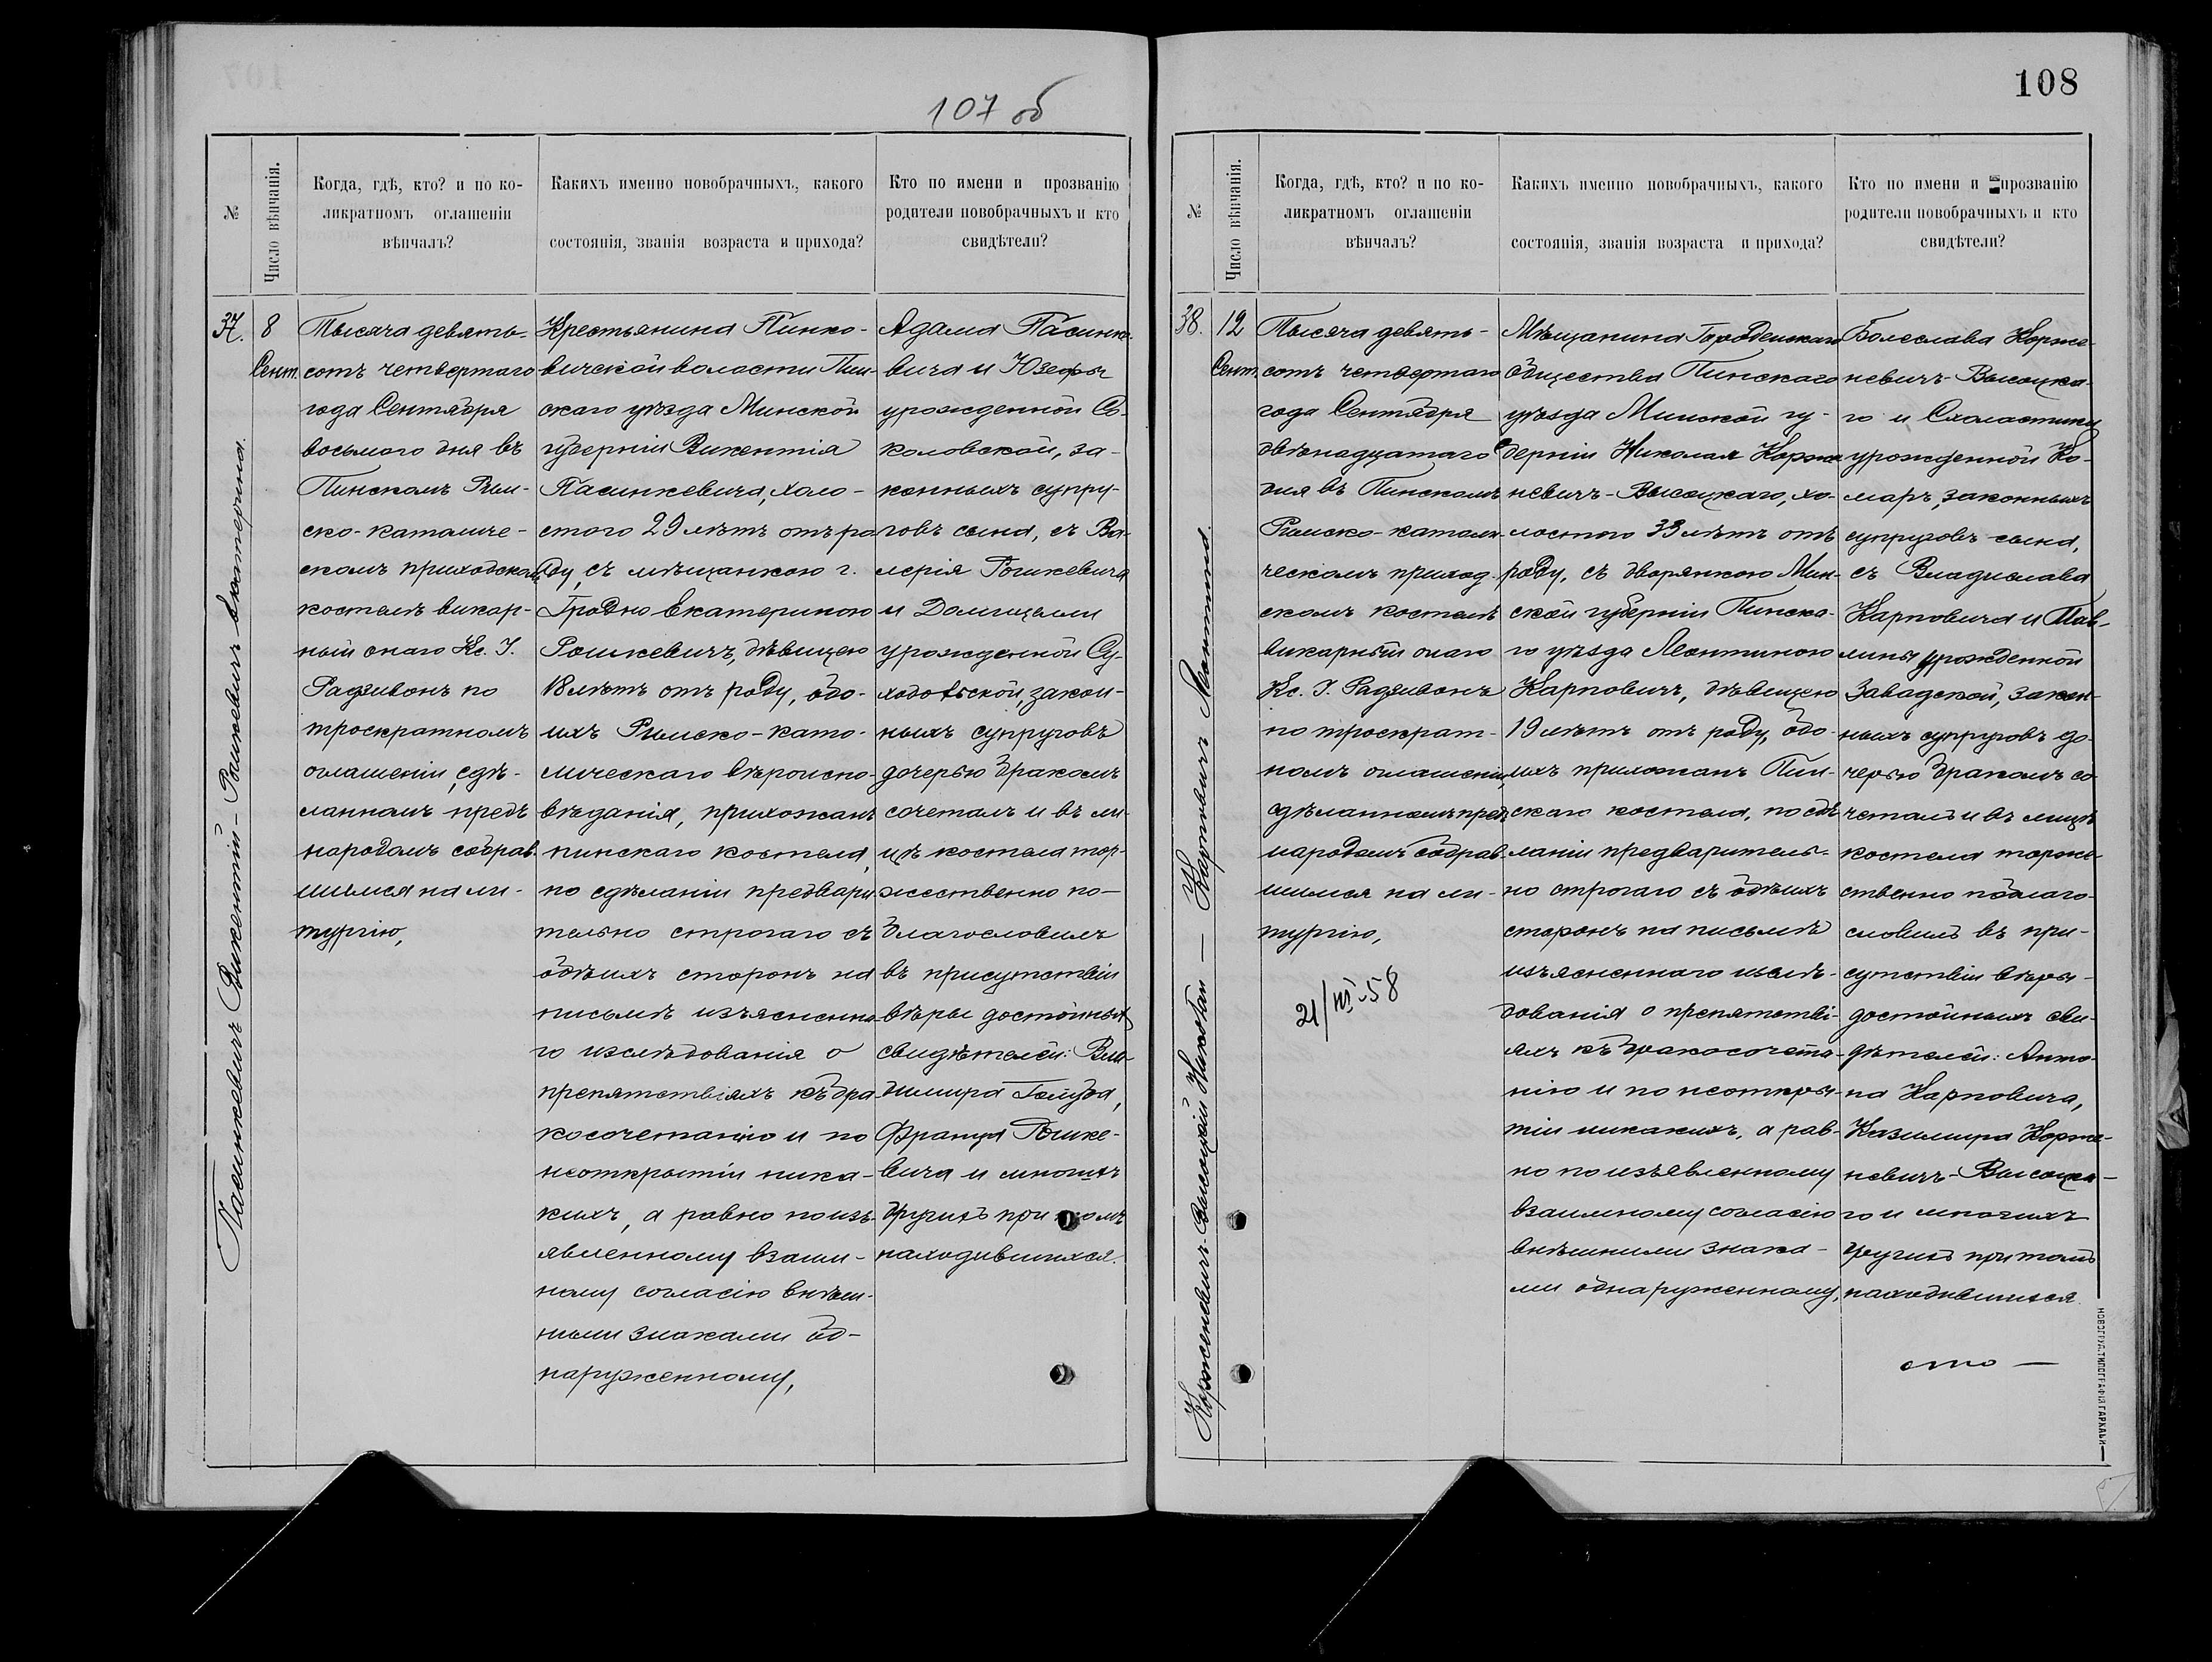 107 об
№
Число вѣнчанія.
Когда, гдѣ, кто? и по ко-
ликратномъ оглашеніи
вѣнчалъ?
Какихъ именно новобрачныхъ, какого
состоянія, званія возраста и прихода?
Кто по имени и прозванію
родители новобрачныхъ и кто
свидѣтели?
Пасинкевичъ Викентій - Рошкевичъ Екатерина.
37.
8
Сент.
Тысяча девять-
сотъ четвертаго
года Сентября
восьмого дня въ
Пинскомъ Рим-
ско-католиче-
скомъ приходскомъ
костелѣ викар-
ный онаго Кс. I.
Радзивонъ по
троекратномъ
оглашеніи, сдѣ-
ланномъ предъ
народомъ собрав-
шимся на ли-
тургію,
Крестьянина Пинко-
вичской волости Пин-
скаго уѣзда Минской
губерніи Викентія
Пасинкевича, холо-
стого 29 лѣтъ отъ ро-
ду, съ мѣщанкою г.
Гродно Екатериною
Рошкевичъ, дѣвицею
18 лѣтъ отъ роду, обо-
ихъ Римско-като-
лическаго вѣроиспо-
вѣданія, прихожанъ
пинскаго костела,
по сдѣланіи предвари-
тельно строгаго съ
обѣихъ сторонъ на
письмѣ изъясненна-
го изслѣдованія о
препятствіяхъ къ бра-
косочетанію и по
неоткрытіи ника-
кихъ, а равно по изъ-
явленному взаим-
ному согласію внѣш-
ними знаками об-
наруженному,
Адама Пасинке-
вича и Юзефы
урожденной Со-
коловской, за-
конныхъ супру-
говъ сына, съ Ва-
лерія Рошкевича
и Домицели
урожденной Су-
ходольской, закон-
ныхъ супруговъ
дочерью бракомъ
сочеталъ и въ ли-
цѣ костела тор-
жественно по-
благословилъ
въ присутствіи
вѣры достойныхъ
свидѣтелей: Вла-
димира Голуба,
Франца Рошке-
вича и многихъ
другихъ при томъ
находившихся.
108
№
Число вѣнчанія.
Когда, гдѣ, кто? и по ко-
ликратномъ оглашеніи
вѣнчалъ?
Какихъ именно новобрачныхъ, какого
состоянія, званія возраста и прихода?
Кто по имени и прозванію
родители новобрачныхъ и кто
свидѣтели?
Корженевичъ-Высоцкій Николай — Карповичъ Леонтина.
38.
12
Сент.
Тысяча девять-
сотъ четвертаго
года Сентября
двѣнадцатаго
дня въ Пинскомъ
Римско-католи-
ческомъ приход-
скомъ костелѣ
викарный онаго
Кс. I. Радзивонъ
по троекрат-
номъ оглашеніи,
сдѣланномъ предъ
народомъ собрав-
шимся на ли-
тургію,
21/VI-58
Мѣщанина Городенскаго
общества Пинскаго
уѣзда Минской гу-
берніи Николая Корже-
невичъ-Высоцкаго, хо-
лостого 33 лѣтъ отъ
роду, съ дворянкою Мин-
ской губерніи Пинска-
го уѣзда Леонтиною
Карповичъ, дѣвицею
19 лѣтъ отъ роду, обо-
ихъ прихожанъ Пин-
скаго костела, по сдѣ-
ланіи предваритель-
но строгаго съ обѣихъ
сторонъ на письмѣ
изъясненнаго изслѣ-
дованія о препятстві-
яхъ къ бракосочета-
нію и по неоткры-
тіи никакихъ, а рав-
но по изъявленному
взаимному согласію
внѣшними знака-
ми обнаруженному,
Болеслава Корже-
невичъ-Высоцка-
го и Схоластики
урожденной Ко-
маръ, законныхъ
супруговъ сына,
съ Владислава
Карповича и Пав-
лины урожденной
Завадской, закон-
ныхъ супруговъ до-
черью бракомъ со-
четалъ и въ лицѣ
костела торже-
ственно поблаго-
словилъ въ при-
сутствіи вѣры-
достойныхъ сви-
дѣтелей: Анто-
на Карповича,
Казимира Корже-
невичъ-Высоцка-
го и многихъ
другихъ при томъ
находившихся.
НОВОГРУД. ТИПОГРАФІЯ ГАРКАВИ